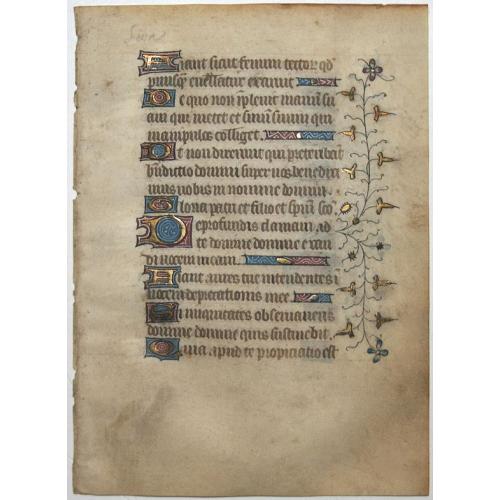 Fiant sicut fenum tectorum qd
priusq evellatur exaruit
De quo non iplevit manum su
am qui metet et sinum suum qui
manipulos colliget
Et non dixerunt qui preteribāt
bn̄dictio domini super vos benedixi
mus vobis in nomine domini
Gloria patri et filio et spiri sco
De profundis clamavi ad
te domine domine exau
di vocem meam
Fiant aures tue intendentes i
vocem deprecationis mee
Si iniquitates observaveris
domine domine quis sustinebit
Quia apud te propiciatio est